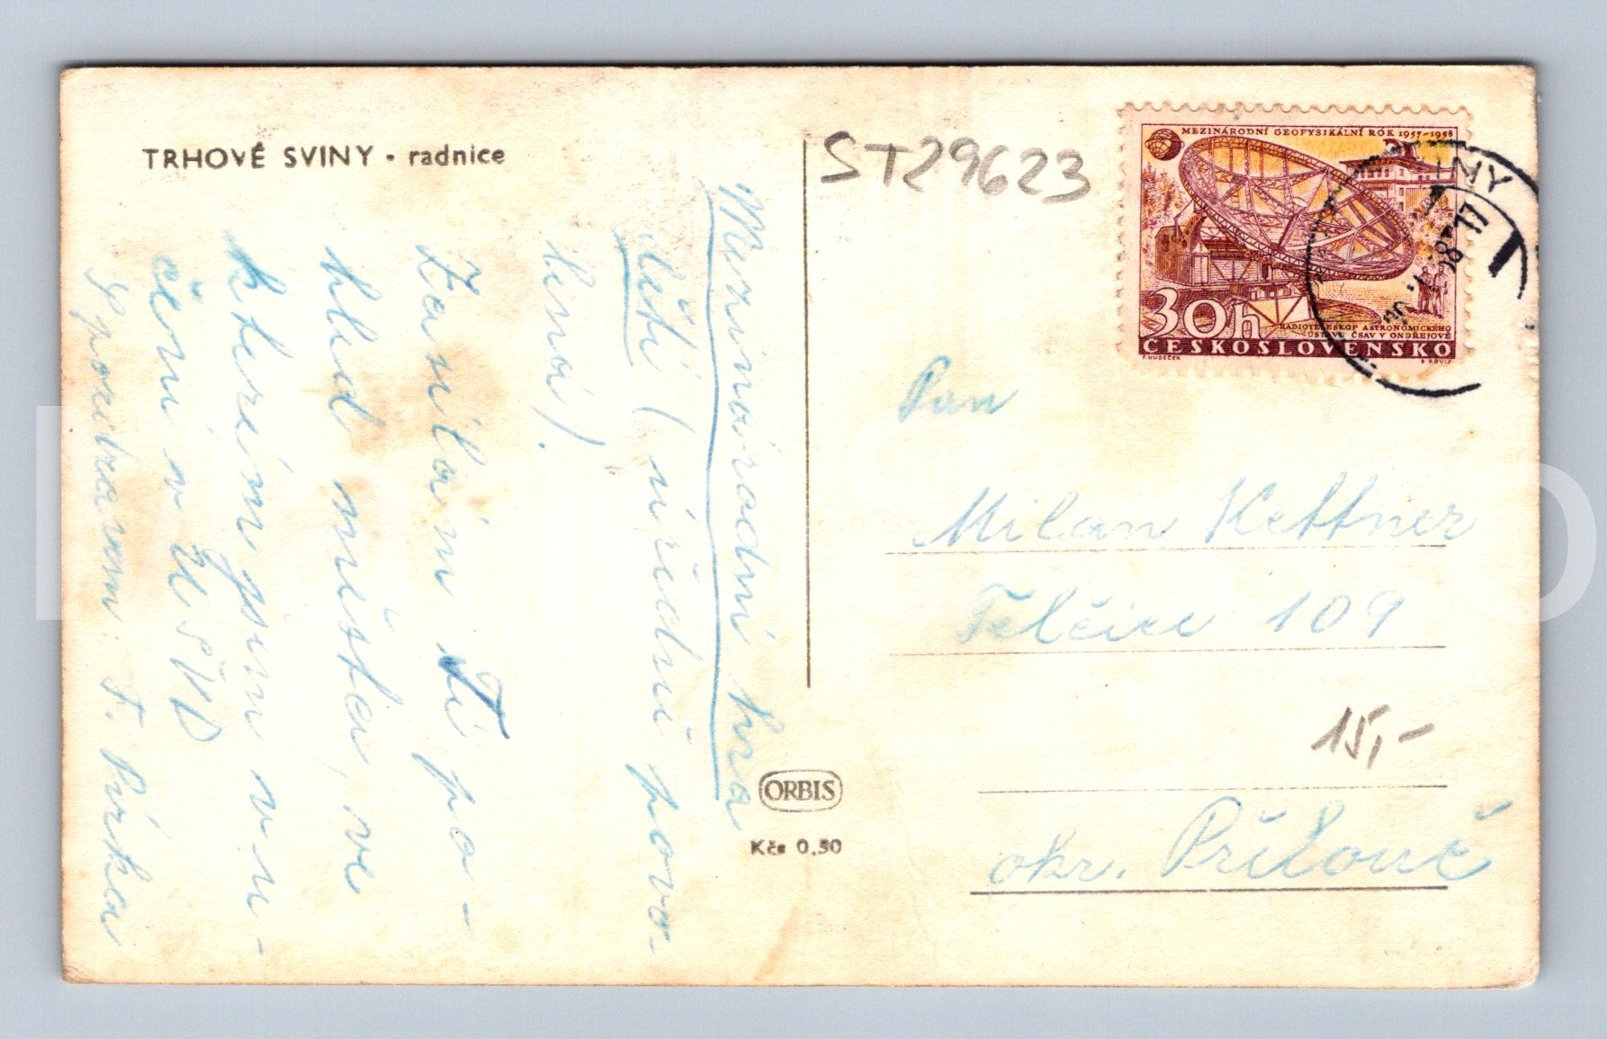 TRHOVÉ SVINY • radnice
ST29623
MEZINÁRODNÍ GEOFYSIKÁLNÍ ROK 1957-1958
30h
RADIOTELESKOP ASTRONOMICKÉHO
ÚSTAVU ČSAV V ONDŘEJOVĚ
ČESKOSLOVENSKO
F. HUDEČEK
NY
Mezinárodní hra
dětí (úřední povo-
lená).
Zasílám Ti po-
hled města, ve
kterém jsem v u-
čení v
S pozdravem: F.
Pan
Milan Kettner
Telčice 109
15,-
okr. Přelouč
ORBIS
Kčs 0,50